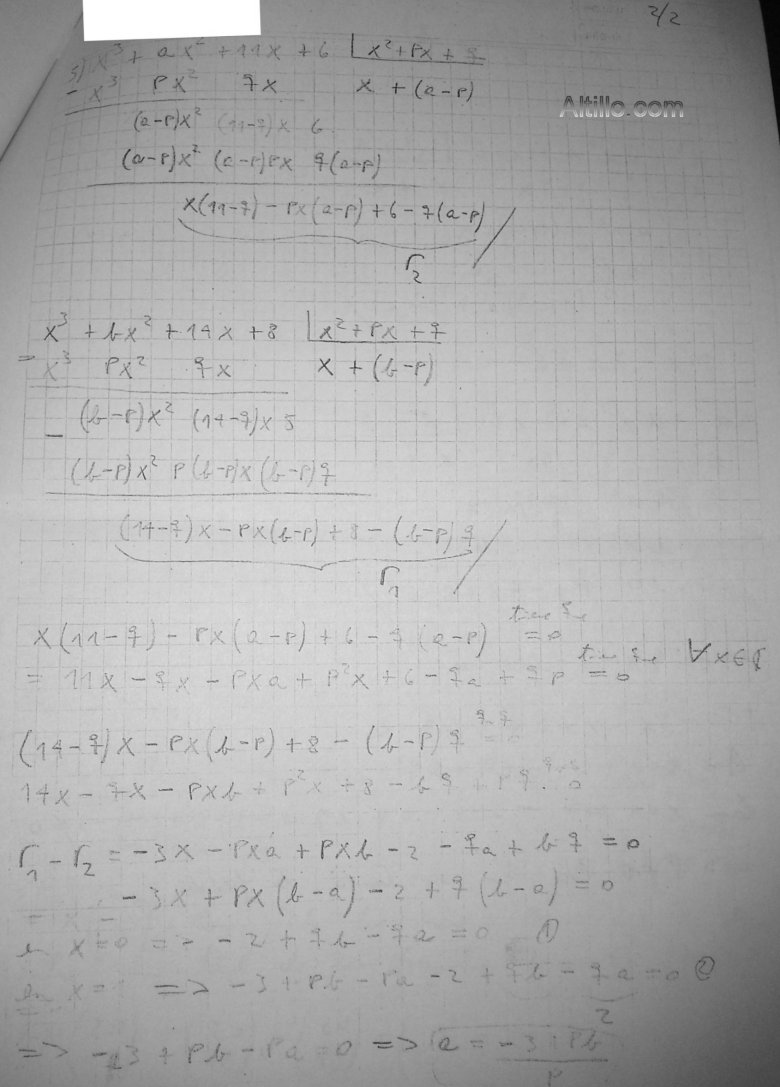 2/2
5) x³ + ax² + 11x + 6 | x² + px + q
- x³ px² qx x + (a-p)
Altillo.com
(a-p)x² (11-q)x 6
(a-p)x² (a-p)px q(a-p)
x(11-q) - px(a-p) + 6 - q(a-p)
r₂
x³ + bx² + 14x + 8 | x² + px + q
- x³ px² qx x + (b-p)
- (b-p)x² (14-q)x 8
(b-p)x² p(b-p)x (b-p)q
(14-q)x - px(b-p) + 8 - (b-p)q
r₁
x(11-q) - px(a-p) + 6 - q(a-p) = 0
= 11x - qx - pxa + p²x + 6 - qa + qp = 0 ∀x∈
(14-q)x - px(b-p) + 8 - (b-p)q =
14x - qx - pxb + p²x + 8 - bq + pq 0
r₁ - r₂ = -3x - pxa + pxb - 2 - qa + bq = 0
-3x + px(b-a) - 2 + q(b-a) = 0
en x=0 => -2 + qb - qa = 0 ①
en x=1 => -3 + pb - pa - 2 + qb - qa = 0 ②
2
=> -3 + pb - pa = 0 => a = -3 + pb / p